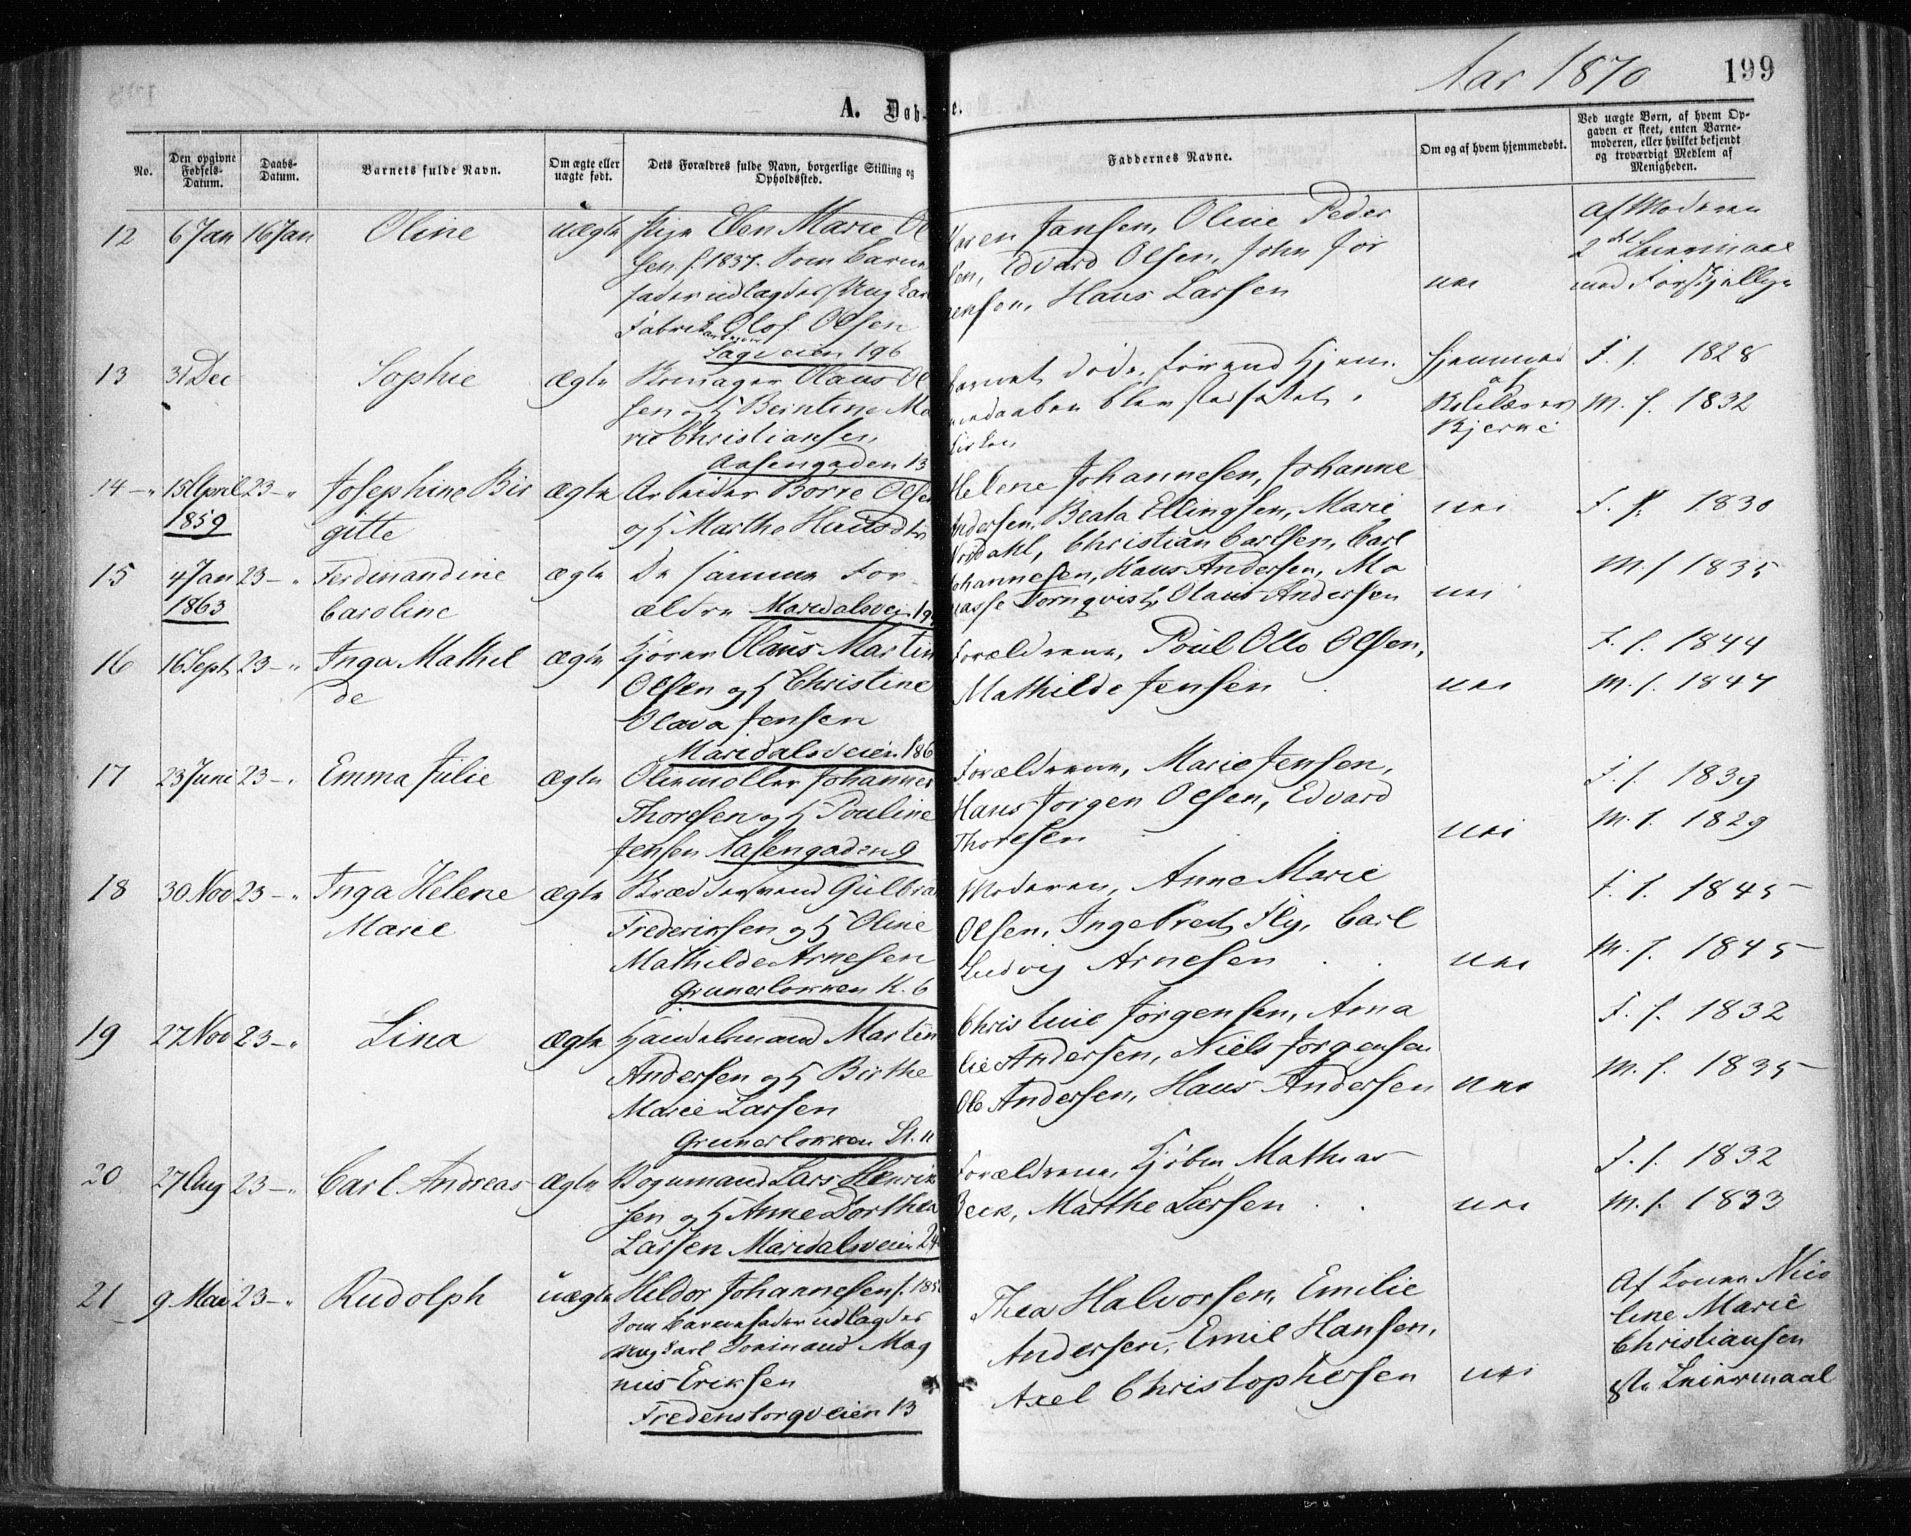 Aar 1870
199
A. Døb- e.
No.
Den opgivne Fødsels-Datum.
Daabs-Datum.
Barnets fulde Navn.
Om ægte eller uægte født.
Dets Forældres fulde Navn, borgerlige Stilling og Opholdssted.
Faddernes Navne.
Om og af hvem hjemmedøbt.
Ved uægte Børn, af hvem Opgaven er skeet, enten Barnemoderen, eller hvilket bekjendt og troværdigt Medlem af Menigheden.
12 6 Jan 16 Jan Oline uægte Pige Elen Marie Ol
sen f. 1837. Som Barne
fader udlagdes Ungkarl
Fabrik Olof Olsen
Sagveien 196
aren Jansen, Oline Peder
sen, Edvard Olsen, John Jør
gensen, Hans Larsen
nei
Af Moderen
2det Leiermaal
med Forskjellige
13 31 Dec Sophie ægte Olaus Ol
sen og H Berntine Ma
rie Christiansen
Aasengaden 13
Barnet døde, førend Hjem
medaaben blev stadfæstet i
Kirken
Hjemmed
af
Bjerke
F. f. 1828
M. f. 1832
14 - " 15 April 23 - " Josephine Bir ægte Arbeider Børre Olsen
1859 gitte og H Marthe
Helene Johannesen, Johanne
Andersen, Beata Ellingsen, Marie
Norddahl, Christian Carlsen, Carl
nei
F. f. 1830
15 4 Jan 23 - " Ferdinandine ægte De samme For-
1863 Caroline ældre Maridalsvei 19
Johannesen, Hans Andersen, Ma
nasse Tornqvist, Olaus Andersen
nei
M. f 1835
16 16 Sept 23 - " Inga Mathil ægte Kjører Olaus Martin
de Olsen og H Christine
Olava Jensen
Maridalsveien 186
Forældrene, Poul Otto Olsen,
Mathilde Jensen
nei
F. f. 1844
M. f. 1847
17 23 Juni 23 - " Emma Julie ægte Oliemøller Johannes
Thoresen og H Pouline
Jensen Aasengaden 9
Forældrene, Marie Jensen,
Hans Jørgen Olsen, Edvard
Thoresen
nei
F. f. 1839
M. f. 1829
18 30 Nov 23 - " Inga Helene ægte Skræddersvend Gulbra
Marie Frederiksen og H Oline
Mathilde Arnesen
Grünerløkken K. 6
Moderen, Anne Marie
Olsen, Ingebret Fly, Carl
Ludvig Arnesen
nei
F. f. 1845
M. f. 1845
19 27 Nov 23 - " Lina ægte Handelsmand Martin
Andersen og H Birthe
Marie Larsen
Grünerløkken St. 11
Christine Jørgensen, Ama
lie Andersen, Niels Jørgensen
Ole Andersen, Hans Andersen
nei
F. f. 1832
M. f. 1835
20 27 Aug 23 - " Carl Andreas ægte Vognmand Lars Henrik
sen og H Anne Dorthea
Larsen Maridalsveien 24
Forældrene, Mathias
Beck, Marthe Larsen
nei
F. f. 1832
M. f. 1833
21 9 Mai 23 - " Rudolph uægte Hildor Johannesen f. 185
Som Barnefader udlagdes
Ungkarl Mag
nus Eriksen
Fredensborgveien 13
Thea Halvorsen, Emilie
Andersen, Emil Hansen,
Axel Christophersen
nei
Af Konen Nico
line Marie
Christiansen
1ste Leiermaal